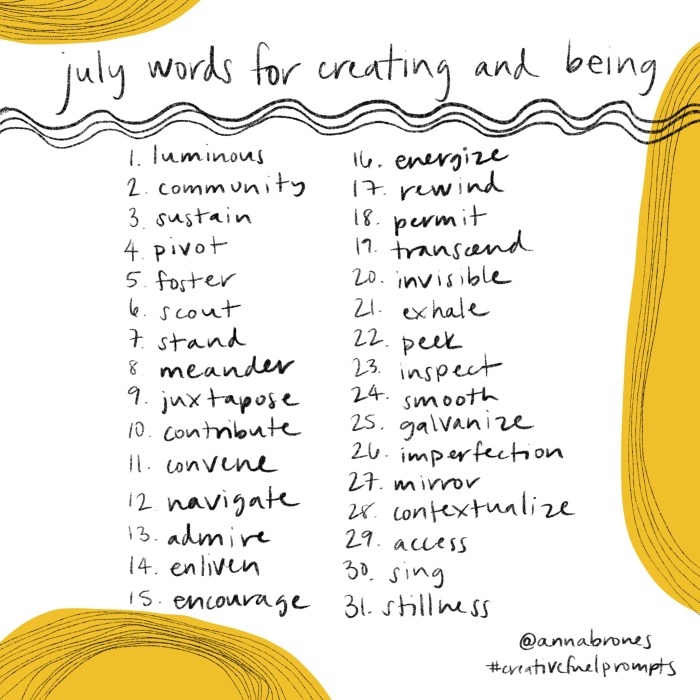 july words for creating and being
1. luminous
2. community
3. sustain
4. pivot
5. foster
6. scout
7. stand
8 meander
9. juxtapose
10. contribute
11. convene
12. navigate
13. admire
14. enliven
15. encourage
16. energize
17. rewind
18. permit
19. transcend
20. invisible
21. exhale
22. peek
23. inspect
24. smooth
25. galvanize
26. imperfection
27. mirror
28. contextualize
29. access
30. sing
31. stillness
@annabrones
#creativefuelprompts